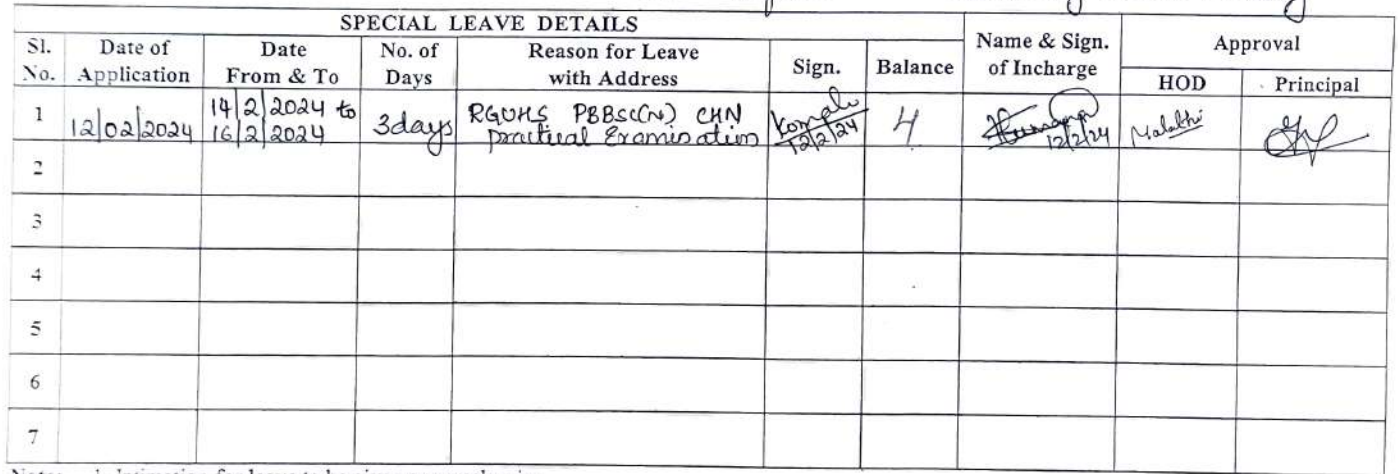 SPECIAL LEAVE DETAILS
Sl. No. Date of Application Date From & To No. of Days Reason for Leave with Address Sign. Balance Name & Sign. of Incharge Approval
HOD Principal
1 12/02/2024 14/2/2024 to 16/2/2024 3days RGUHS PBBSc(N) CHN practical Examination Komal 12/2/24 4 12/2/24 Malathi
2
3
4
5
6
7